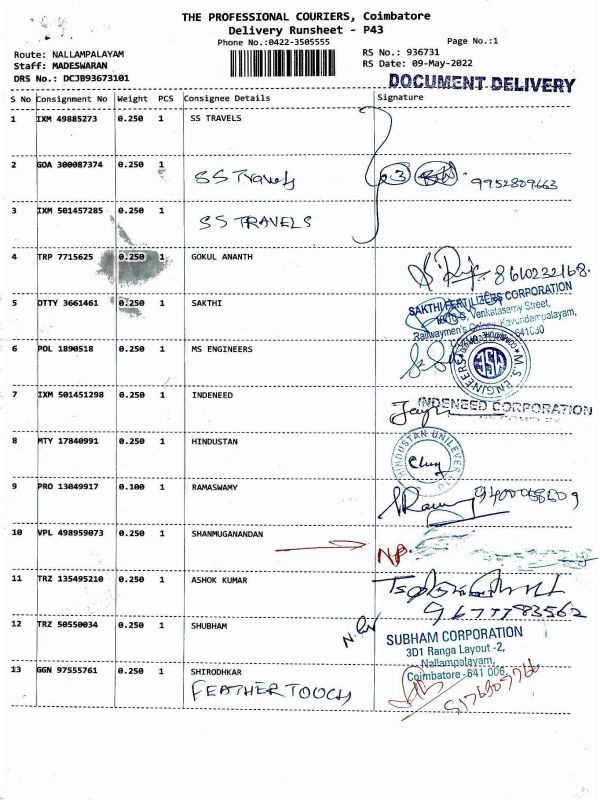 THE PROFESSIONAL COURIERS, Coimbatore
Delivery Runsheet - P43
Phone No.:0422-3505555
Page No.:1
Route: NALLAMPALAYAM
Staff: MADESWARAN
DRS No.: DCJB93673101
RS No.: 936731
RS Date: 09-May-2022
DOCUMENT DELIVERY
S No Consignment No Weight PCS Consignee Details Signature
1 IXM 49885273 0.250 1 SS TRAVELS
2 GOA 300087374 0.250 1
SS Travels 9952809663
3 IXM 501457285 0.250 1
SS TRAVELS
4 TRP 7715625 0.250 1 GOKUL ANANTH
8610232168.
5 DTTY 3661461 0.250 1 SAKTHI
SAKTHI FERTILIZERS CORPORATION
Venkatasamy Street,
Railwaymen's Colony, Kavundampalayam,
641030
6 POL 1890518 0.250 1 MS ENGINEERS
M.S. ENGINEERS
7 IXM 501451298 0.250 1 INDENEED
INDENEED CORPORATION
8 MTY 17840991 0.250 1 HINDUSTAN
HINDUSTAN UNILEVER
9 PRO 13049917 0.100 1 RAMASWAMY
10 VPL 498959073 0.250 1 SHANMUGANANDAN
NP.
11 TRZ 135495210 0.250 1 ASHOK KUMAR
9677783562
12 TRZ 50550034 0.250 1 SHUBHAM
SUBHAM CORPORATION
3D1 Ranga Layout -2,
Nallampalayam,
Coimbatore -641 006.
13 GGN 97555761 0.250 1 SHIRODHKAR
FEATHER TOUCH